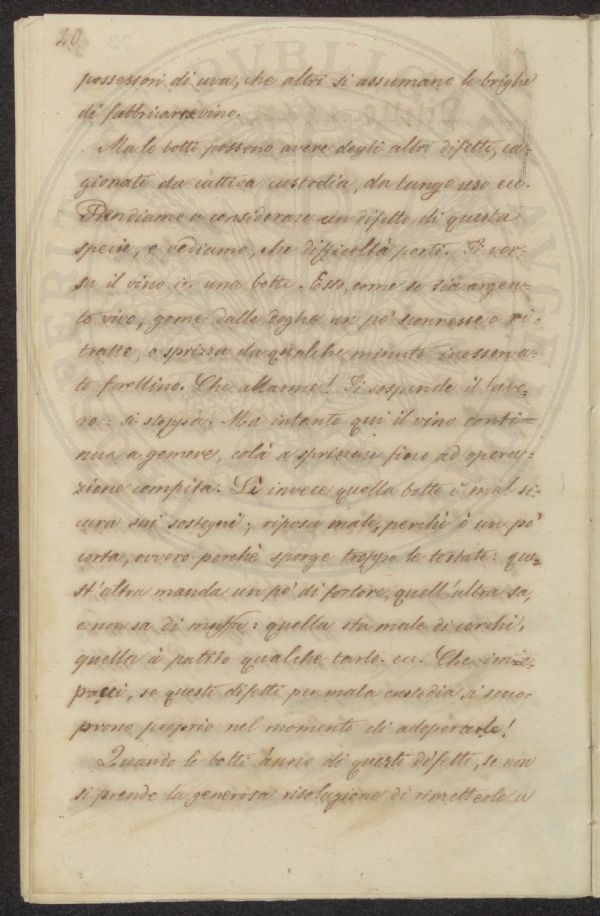 20
possessori di uva, che altri si assumano le brighe
di fabbricarne vino.
Ma le botti possono avere degli altri difetti, ca-
gionati da cattiva custodia, da lungo uso ecc.
Prendiamo a considerare un difetto di questa
specie, e vediamo, che difficoltà porti. Si ver-
sa il vino in una botte. Esso, come se sia argen-
to vivo, geme dalle doghe un po' sconnesse o ri-
tratte, o sprizza da qualche minuto inosserva-
to forellino. Che allarme! Si sospende il lavo-
ro: si stoppa. Ma intanto qui il vino conti-
nua a gemere, colà a sprizzare fino ad opera-
zione compita. Lì invece quella botte è mal si-
cura sui sostegni; riposa male, perchè è un po'
corta, ovvero perchè sporge troppo le testate: que-
st'altra manda un po' di fortore, quell'altra sa,
e non sa di muffa: quella sta male di cerchi,
quella à patito qualche tarlo. ecc. Che im-
pacci, se questi difetti per mala custodia si sco-
prono proprio nel momento di adoperarle!
Quando le botti ànno di questi difetti, se non
si prende la generosa risoluzione di rimetterle a